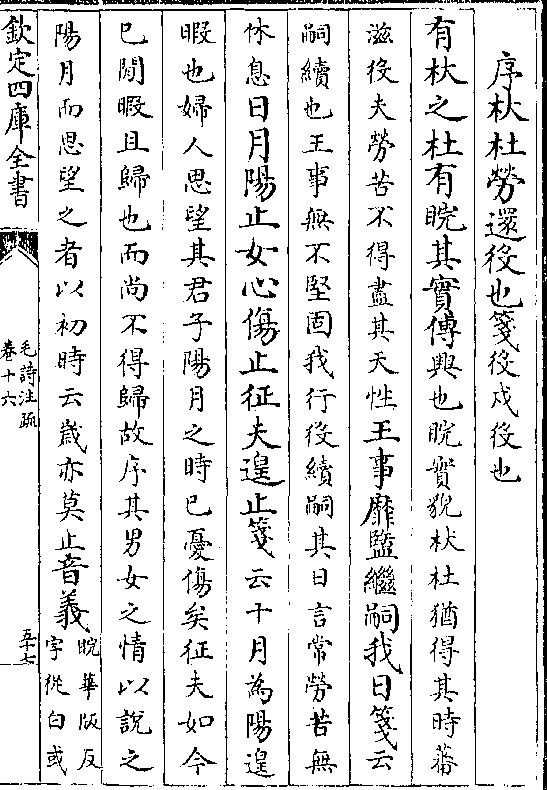 序杕杜勞還役也箋役戍役也
有杕之杜有睆其實傳興也睆實貌杕杜猶得其時蕃
滋役夫勞苦不得盡其天性王事靡盬繼嗣我日箋云
嗣續也王事無不堅固我行役續嗣其日言常勞苦無
休息日月陽止女心傷止征夫遑止箋云十月為陽遑
暇也婦人思望其君子陽月之時已憂傷矣征夫如今
已閒暇且歸也而尚不得歸故序其男女之情以說之
陽月而思望之者以初時云歲亦莫止音義睆華版反
字從白或
欽定四庫全書
毛詩注疏
卷十六
五十七